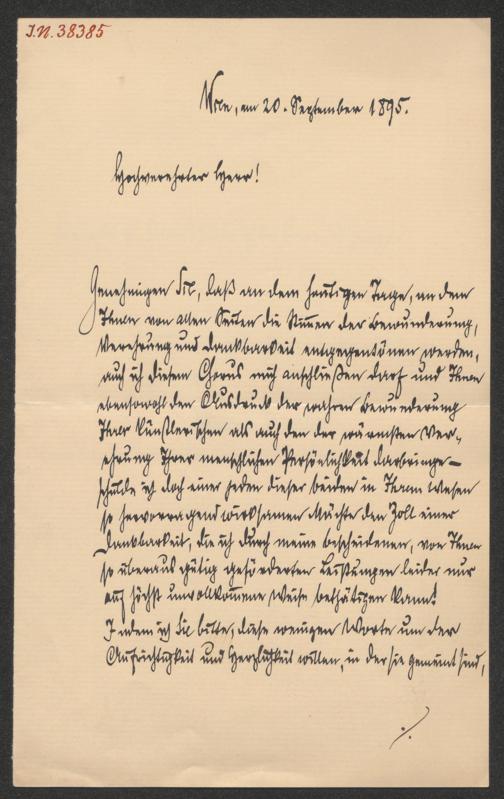 I.N. 38385
Wien, am 20. September 1895.
Hochverehrter Herr!
Genehmigen Sie, daß an dem heutigen Tage, an dem
Ihnen von allen Seiten die Stimmen der Bewunderung,
Verehrung und Dankbarkeit entgegentönen werden,
auch ich diesem Chorus mich anschließen darf und Ihnen
ebensowohl den Ausdruck der wahren Bewunderung
Ihrer künstlerischen als auch den der wärmsten Ver-
ehrung Ihrer menschlichen Persönlichkeit darbringe –
schulde ich doch einer jeden dieser beiden in Ihrem Wesen
so hervorragend wirksamen Mächte den Zoll einer
Dankbarkeit, die ich durch meine bescheidenen, von Ihnen
so überaus gütig geförderten Leistungen leider nur
auf höchst unvollkommene Weise bethätigen kann!
Indem ich Sie bitte, diese wenigen Worte um der
Aufrichtigkeit und Herzlichkeit willen, in der sie gemeint sind,
./.